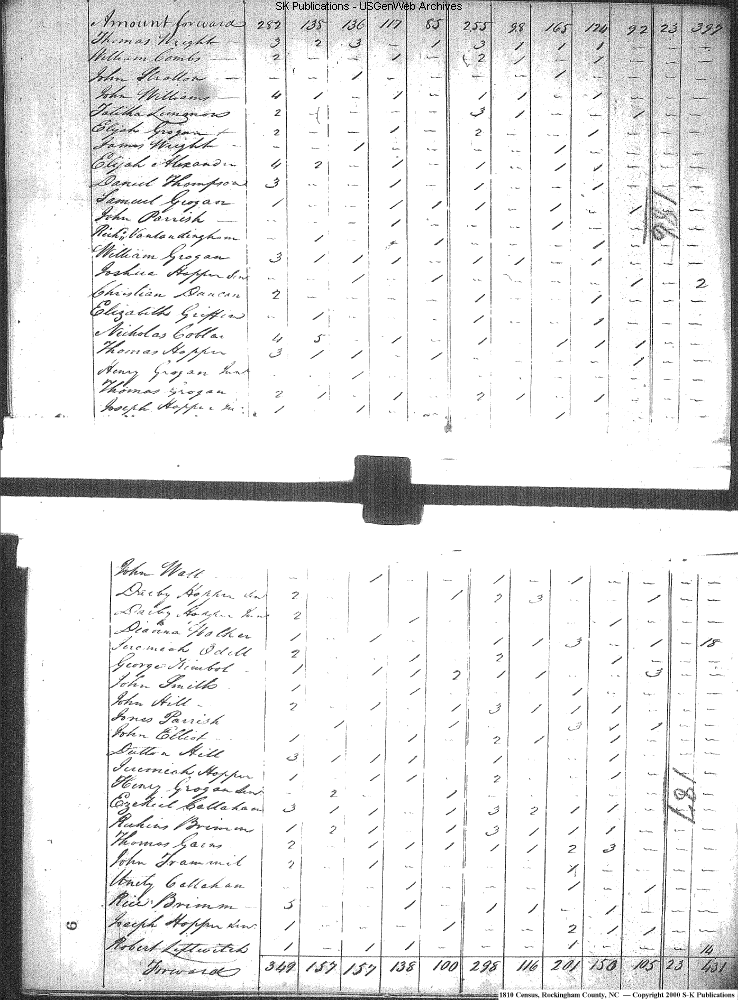 SK Publications - USGenWeb Archives
Amount forward 282 135 136 117 85 255 98 165 124 92 23 397
Thomas Wright 3 2 3 - 1 3 1 1 1
William Combs 2 - - 1 - 2 1 1
John Stratton - - 1 - - - - 1
John Williams 4 1 - 1 - 1 1 - 1
Talitha Lemmons 2 - - - 3 1 - - 1
Elijah Grogan 2 - - 1 - 2 - - 1
James Wright - - 1 - - - - 1
Elijah Alexander 4 2 - 1 - 1 - 1 1
Daniel Thompson 3 - - 1 - 1 - - 1
Samuel Grogan 1 - - 1 1 1 - 1 - 1
John Parrish - - - 1 - - - 1
Rich'd Vanlandingham - 1 - 1 - - - 1
William Grogan 3 1 1 1 - 1 1 - 1
Joshua Hopper Sen - - 1 - 1 - - - - 1 - 2
Christian Duncan 2 - - - - 1 - - 1
Elizabeth Griffin - 1 - - - 1 - - 1
Nicholas Collar 4 5 - 1 - 1 - 1 1 1
Thomas Hopper 3 1 1 - 1 - - - - 1
Henry Grogan Junr - - 1
Thomas Grogan 2 1 - 1 - 2 1 - 1
Joseph Hopper 1 - 1 - - - - 1
186
John Wall - - 1 - - 1 - 1
Darby Hopper Sen 2 1 2 3 1
Darby Hopper Junr 2 1 1
Dianna Walker 1 - 1 1 1 3 - 1 - 18
Jeremiah Odell 2 1 2 1
George Kimbol 1 - 1 1 2 1 1 3
John Smith 1 1 1
John Hill 2 - 1 - 1 3 1 1 1
Jones Parrish 1 1 3 1 1
John Elliot 1 - 1 2 1 1
Dutton Hill 3 1 1 1 1 1
Jeremiah Hopper 1 - 1 1 2 1
Henry Grogan Senr - 2 1
Ezekiel Callahan 3 1 1 - 1 3 2 1 1
Rukins Brimm 1 2 1 - 1 3 1 1 1
Thomas Gains 2 1 1 1 1 1 2 3
John Trammil 2 - 1
Unity Callahan 1 1 1
Rice Brimm 3 - - 1 - 1 1 - 1
Joseph Hopper Senr 1 - - - 1 - - 2 1 1
Robert Leftwitch 1 - 1 1 - - - 1 - - - 14
187
6
Forward 349 157 157 138 100 298 116 201 150 105 23 431
1810 Census, Rockingham County, NC — Copyright 2000 S-K Publications